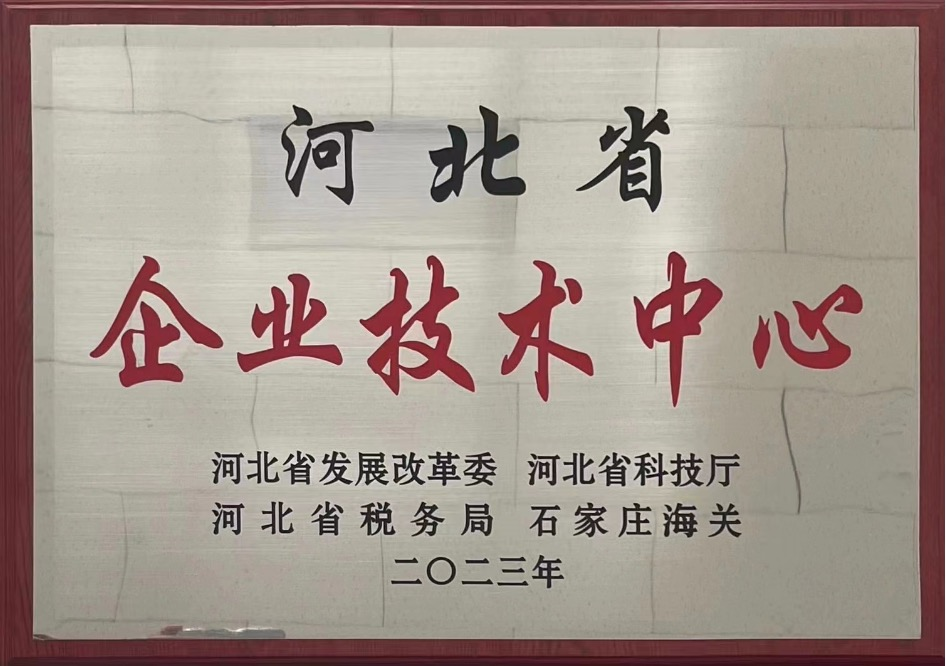 河北省
企业技术中心
河北省发展改革委 河北省科技厅
河北省税务局 石家庄海关
二〇二三年